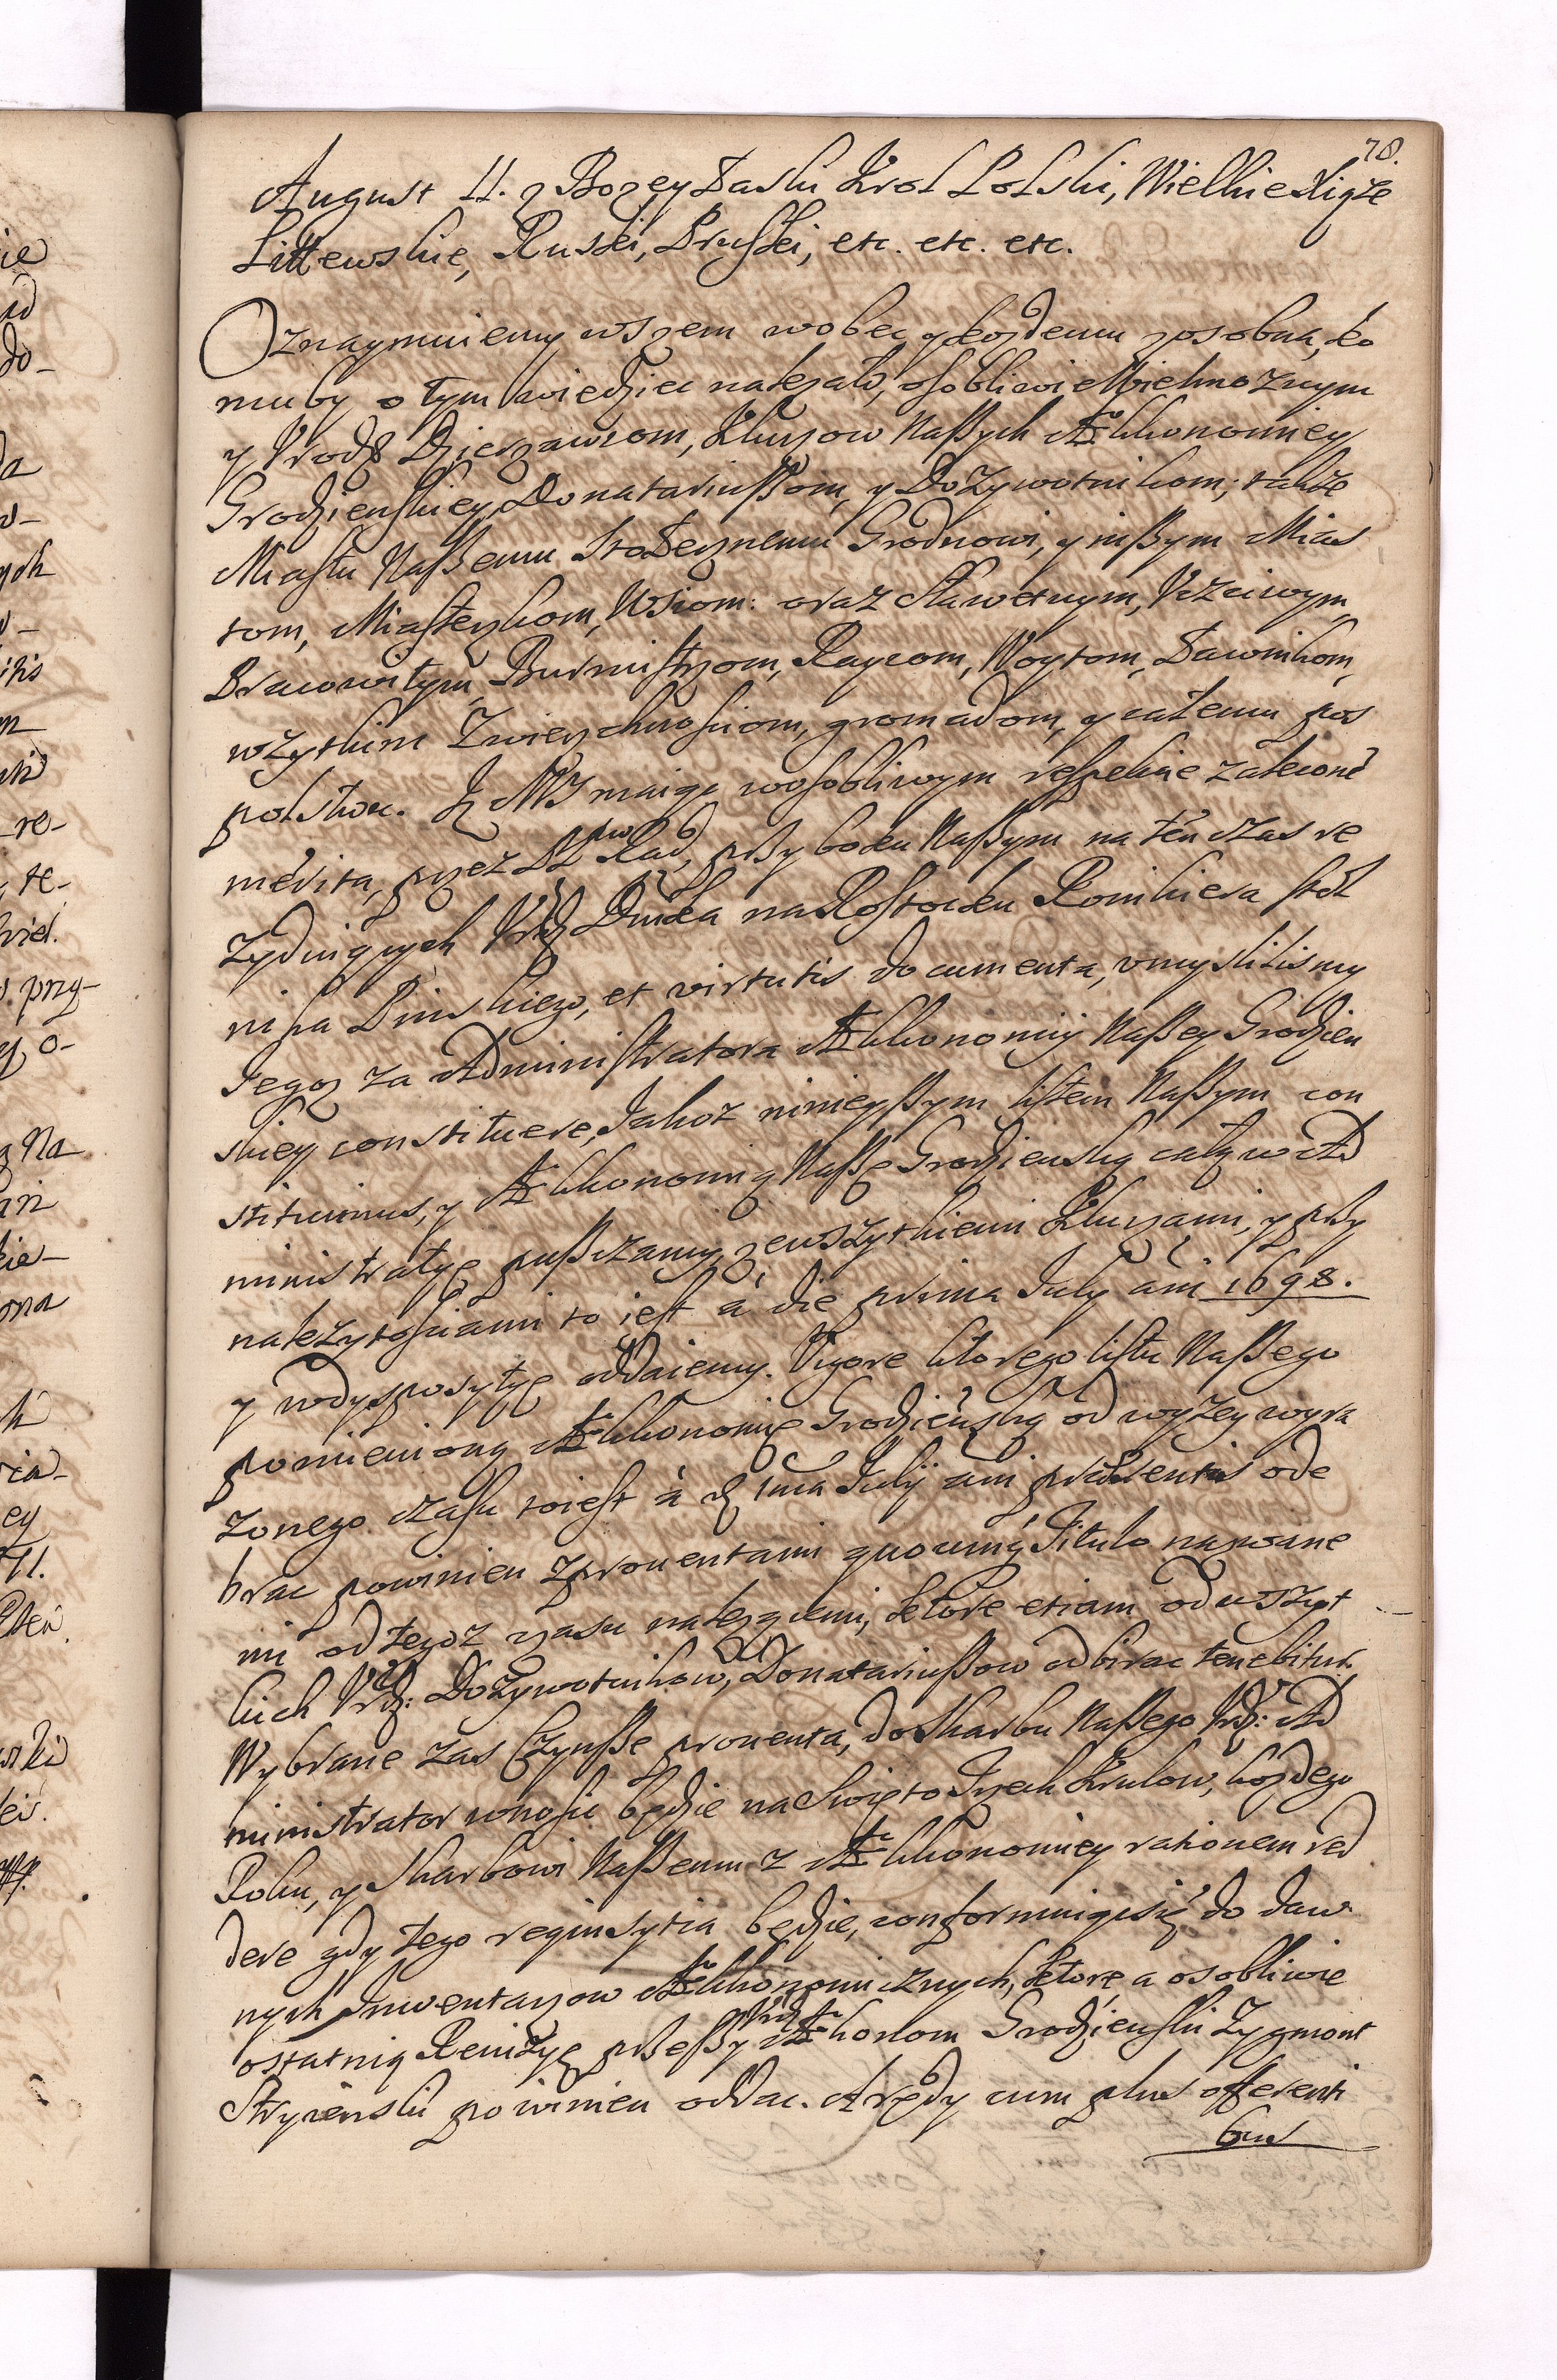 78.
August II. z Bozey Łaski Krol Polski, Wielkie Xiąże
Littewskie, Ruski, Pruski, etc. etc. etc.
Oznaymuiemy wszem wobec y kozdemu zosobna, ko
muby o tym wiedziec nalezało, osobliwie Wielmoznym
y Urodz Dzierzawcom, Kluczow Naszych Ækkonomiey
Grodzienskiey Donatariuszom, y Dożywotnikom; także
Miastu Naszemu Stołecznemu Grodnowi, y inszym Mias
tom, Miasteczkom, Wsiom: oraz Sławetnym, Uczciwym
Pracowitym Burmistrzom, Raycom, Woytom, Ławnikom,
wszytkim Zwierzchnosciom, gromadom, y całemu pos
polstwu. Iz MY maiąc wosobliwym respekcie zalecone
merita, przez Rad, przy boku Naszym na ten czas re
zyduiących Urdz Duńka na Rostocku Romikiera stol
nika Pinskiego, et virtutis documenta, umyslilismy
Iegoz za Administratora Ækkonomiy Naszey Grodzien
skiey constituere, Iakoz ninieyszym listem Naszym con
stituimus, y Ækkonomią Naszę Grodzienską całą w Ad
ministratyę puszczamy, zewszytkiemi Kluczami, y przy
nalezytosciami to iest à die prima July ani 1698.
y wdyspozytyę oddaiemy. Vigore ktorego listu Naszego
pomienioną Ækkonomię Grodzieńską od wyżey wyra
zonego czasu toiest à d 1ma Julij ani præsentis ode
brac powinien zprowentami quocunq Titulo nazwane
mi od tegoz czasu nalezącemi, ktore etiam od wszyt
kich Urdz: Dożywotnikow, Donatariuszow odbirac tenebitur.
Wybrane zas Czynsze prowenta, do Skarbu Naszego Urdz: Ad
ministrator wnosic będzie na Swięto Trzech Krulow, kozdego
Roku, y Skarbowi Naszemu z Ækkonomiey rationem red
dere gdy tego requisytia będzie, conformuiąc się do daw
nych Inwentarzow Ækkonomicznych, ktore, a osobliwie
ostatnią Rewizyę przeszły Urdz Ækkonom Grodzienski Zygmont
Stryienski powinien oddac. Arędy cum plus offerenti
bus